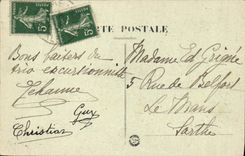 CARTE POSTALE
5 5
Bons baisers du
trio excursionniste
Jehanne
Guy
Christian
Madame Ed.
5 Rue de Belfort
Le Mans
Sarthe